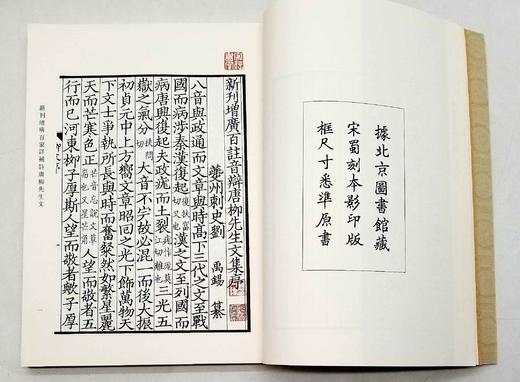 據北京圖書館藏
宋蜀刻本影印版
框尺寸悉準原書
新刊增廣百註音辯唐柳先生文集序
夔州刺史劉 禹錫 纂
八音與政通而文章與時髙下三代之文至戰
國而病涉秦漢復起漢之文至列國而
病唐興復起夫政厖而土裂三光五
嶽之氣分大音不完故必混一而後大振
初貞元中上方嚮文章昭回之光下飾萬物天
下文士爭執所長與時而奮粲然如繁星麗
天而芒寒色正人望而敬者五
行而已河東柳子厚斯人望而敬者歟子厚
新刊增廣百家詳補註唐柳先生文